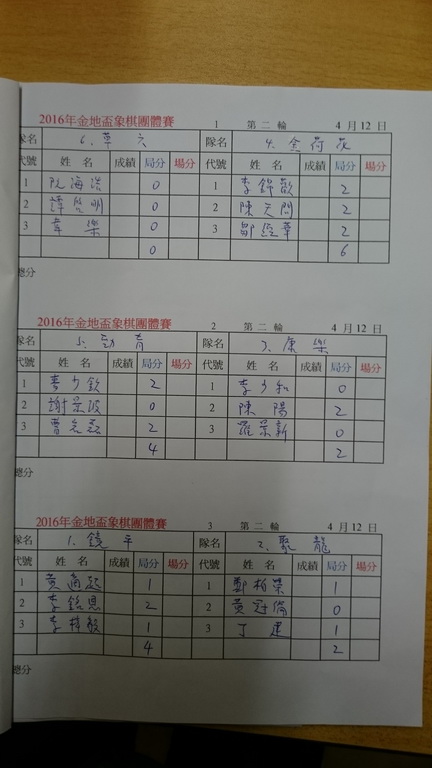 2016年金地盃象棋團體賽 1 第二輪 4月12日
隊名 6. 草六 隊名 4. 金荷花
代號 姓名 成績 局分 場分 代號 姓名 成績 局分 場分
1 阮海浩 0 1 李錦歡 2
2 譚啓明 0 2 陳天問 2
3 韋樂 0 3 鄒經華 2
0 6
總分
2016年金地盃象棋團體賽 2 第二輪 4月12日
隊名 5. 青 隊名 3. 康樂
代號 姓名 成績 局分 場分 代號 姓名 成績 局分 場分
1 李少欽 2 1 李少知 0
2 謝景波 0 2 陳陽 2
3 曹 2 3 羅景新 0
4 2
總分
2016年金地盃象棋團體賽 3 第二輪 4月12日
隊名 1. 鏡平 隊名 2. 聚龍
代號 姓名 成績 局分 場分 代號 姓名 成績 局分 場分
1 黃 1 1 鄭柏榮 1
2 李銘恩 2 2 黃冠倫 0
3 李梓敏 1 3 丁建 1
4 2
總分